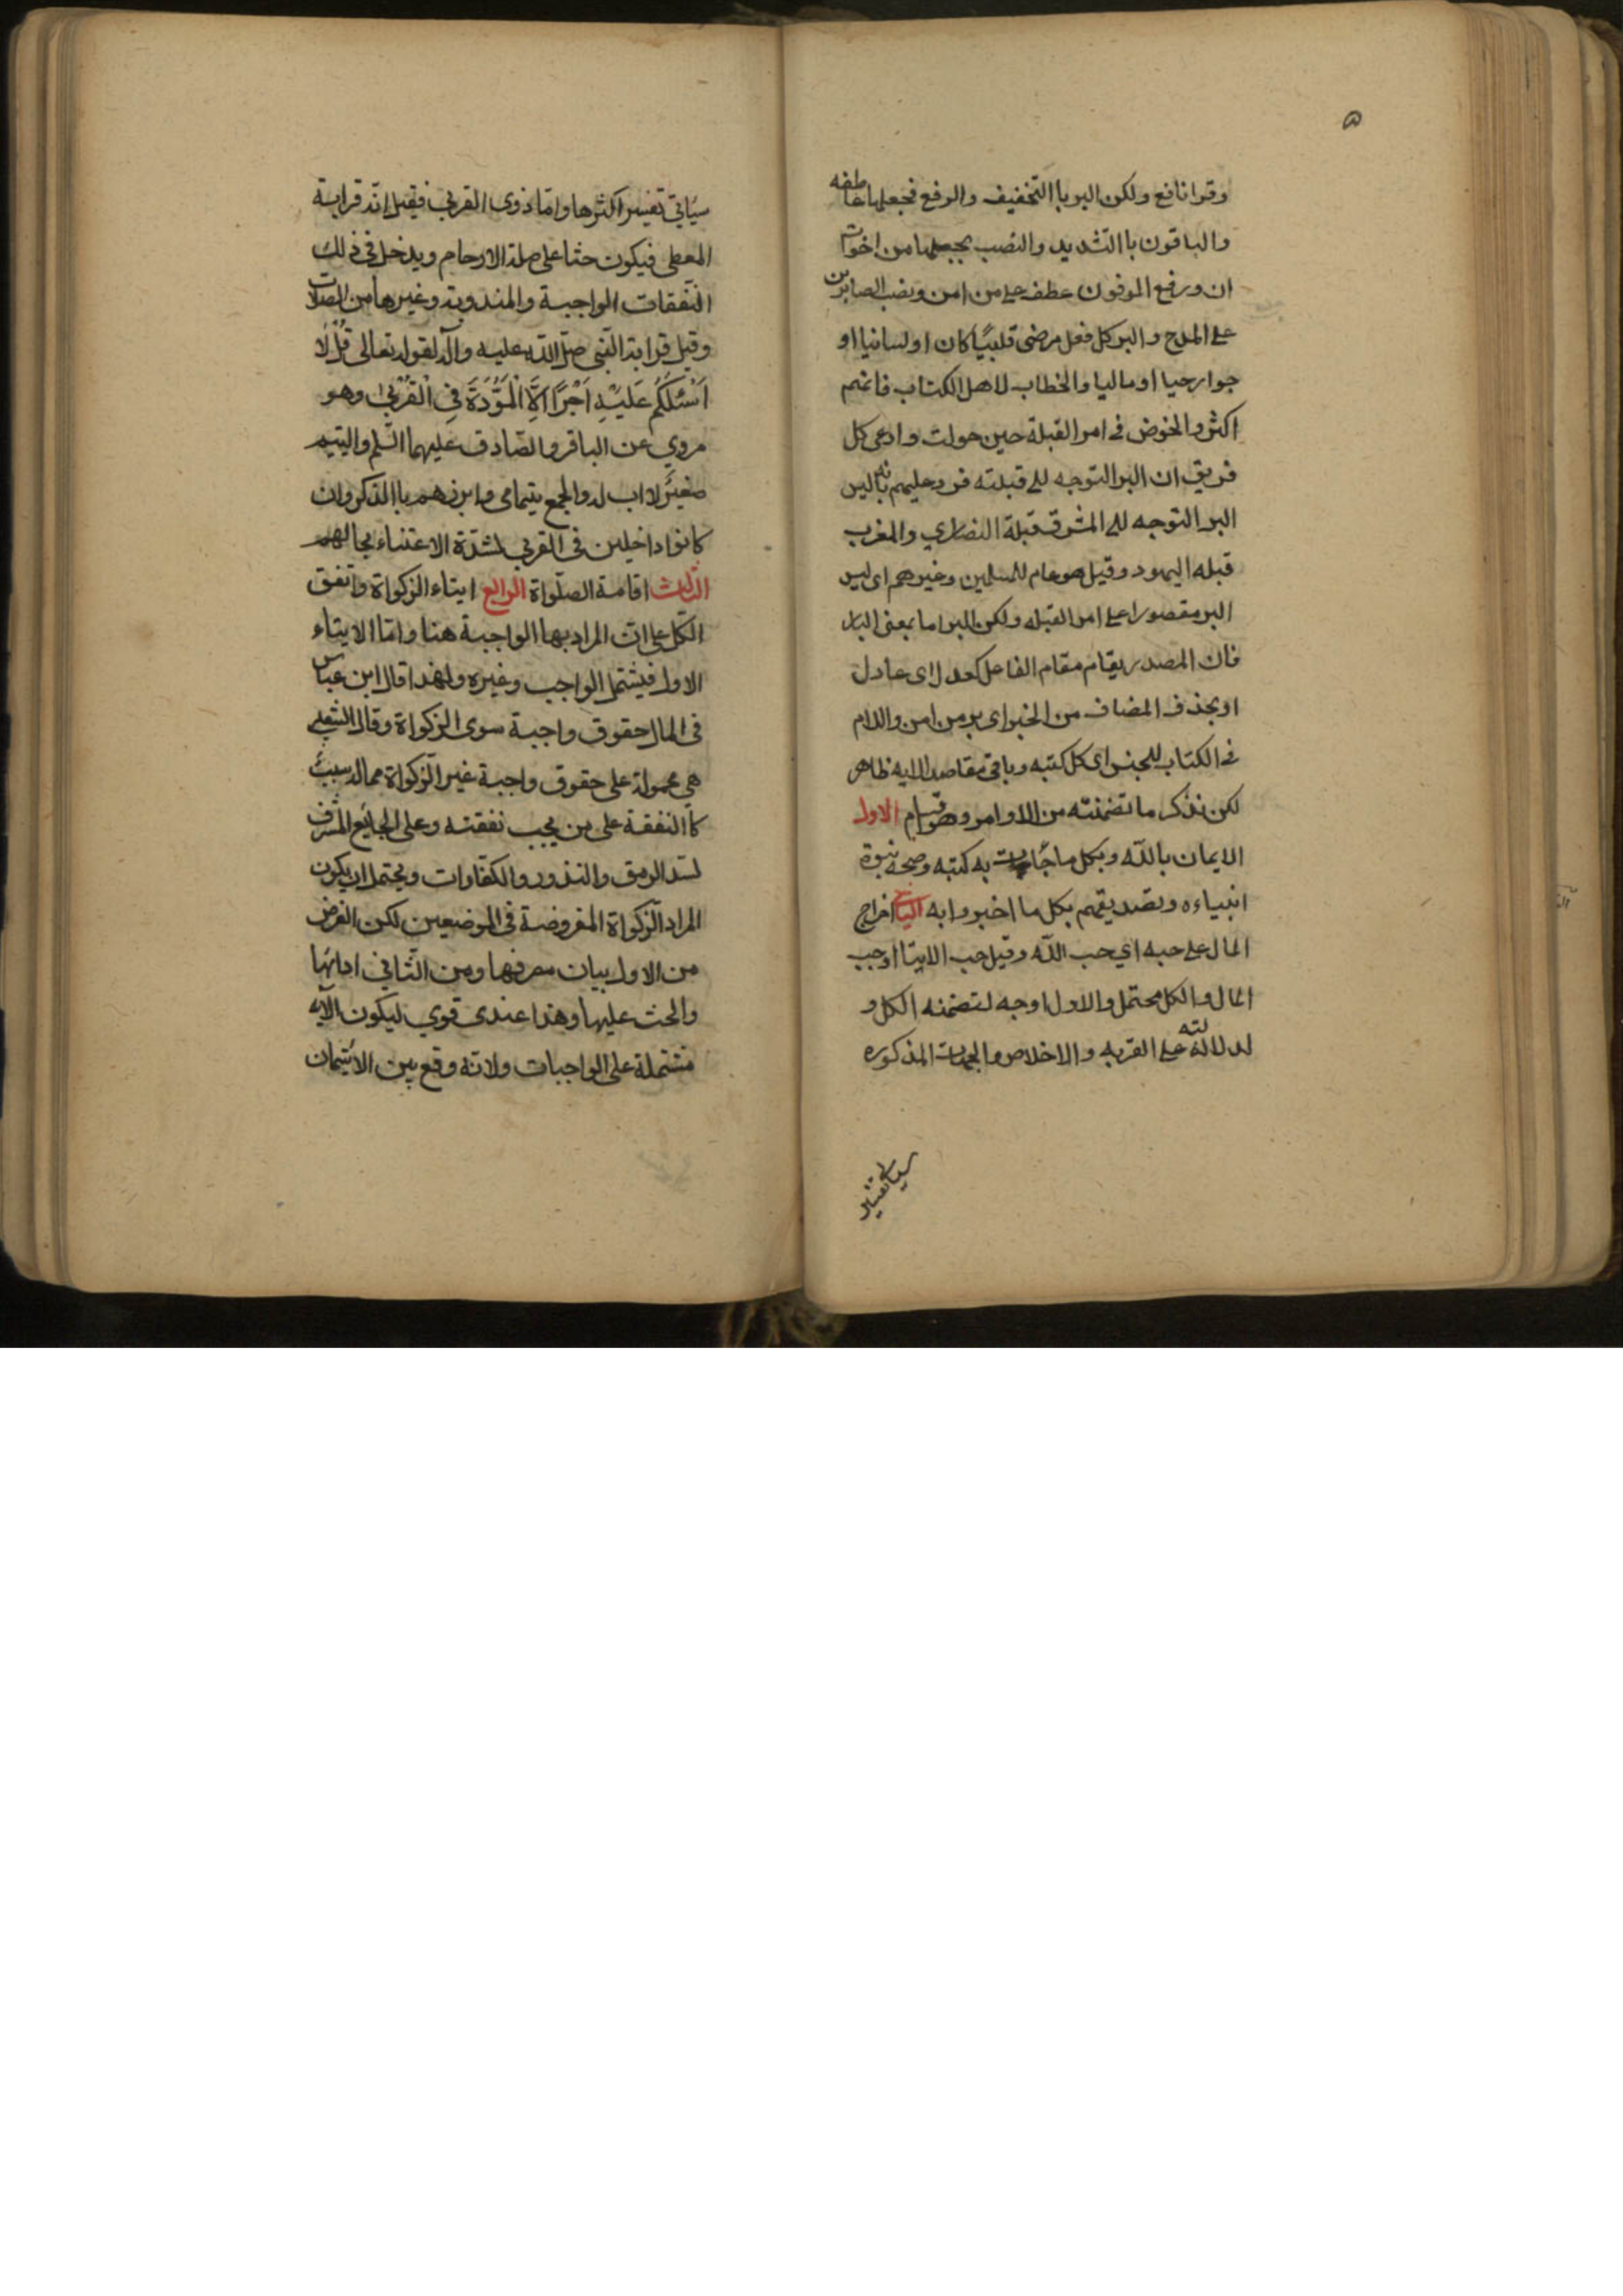 ٥
وقرا نافع ولكن البر باالتخفيف والرفع فجعلها عاطفه
والباقون باالتشديد والنصب بجعلها من اخوات
ان ورفع الموفون عطف على من امن ونصب الصابرين
على المدح والبر كل فعل مرضى قلبيًا كان او لسانيا او
جوارحيا او ماليا والخطاب لاهل الكتاب فانهم
اكثروا الخوض فى امر القبلة حين حولت وادعى كل
فريق ان البر التوجه الى قبلته فرد عليهم بانه ليس
البر التوجه الى المشرق قبلة النصارى والمغرب
قبله اليهود وقيل هو عام للمسلمين وغيرهم اى ليس
البر مقصورا على امر القبله ولكن البر اما بمعنى البار
فان المصدر يقام مقام الفاعل كعدل اى عادل
او بحذف المضاف من الخبر اى بر من امن واللام
فى الكتاب للجنس اى كل كتبه وباقى مقاصد الايه ظاهر
لكن نذكر ما تضمنته من الاوامر وهو اقسام الاول
الايمان باللّه وبكل ما جاءت به كتبه وصحة نبوة
انبياءه وتصديقهم بكل ما اخبروا به الثانى اخراج
المال على حبه اي حب اللّه وقيل حب الايتا او حب
المال والكل محتمل والاول اوجه لتضمنه الكل و
لدلالته على القربه والاخلاص والجهات المذكوره
سياتى تفسير
سيَاتي تفسير اكثرها وامّا ذوى القربى فقيل انّه قرابة
المعطى فيكون حثا على صلة الارحام ويدخل فى ذلك
النّفقات الواجبة والمندوبة وغيرها من الصلات
وقيل قرابة النّبى صلّى اللّه عليه وآله لقوله تعالى قُلْ لَا
اَسْئَلُكُمْ عَلَيْهِ اَجْرًا اِلَّا الْمَوَدَّةَ فِى الْقُرْبٰى وهو
مروي عن الباقر والصّادق عليهما السّلم واليتيم
صغيرٌ لا اب له والجمع يتيامى وابرزهم باالذكر وان
كانوا داخلين فى القربى لشدّة الاعتناء بحالهم
الثّالث اقامة الصلّواة الرابع ايتاء الزكواة واتفق
الكلّ على انّ المراد بها الواجبة هنا وامّا الايتاء
الاول فيشتمل الواجب وغيره ولهذا قال ابن عباس
فى المال حقوق واجبة سوى الزكواة وقال الشعبى
هي محمولة على حقوق واجبة غير الزّكواة مما له سببٌ
كاالنفقة على من يجب نفقته وعلى الجايَع المشرف
لسّد الرمق والنذور والكفّارات ويحتمل ان يكون
المراد الزّكواة المفروضة فى الموضعين لكن الغرض
من الاول بيان مصرفها ومن الثّانى ادائها
والحث عليها وهذا عندى قوي ليكون الآيه
مشتملة على الواجبات ولانّه وقع بين الائتيمان